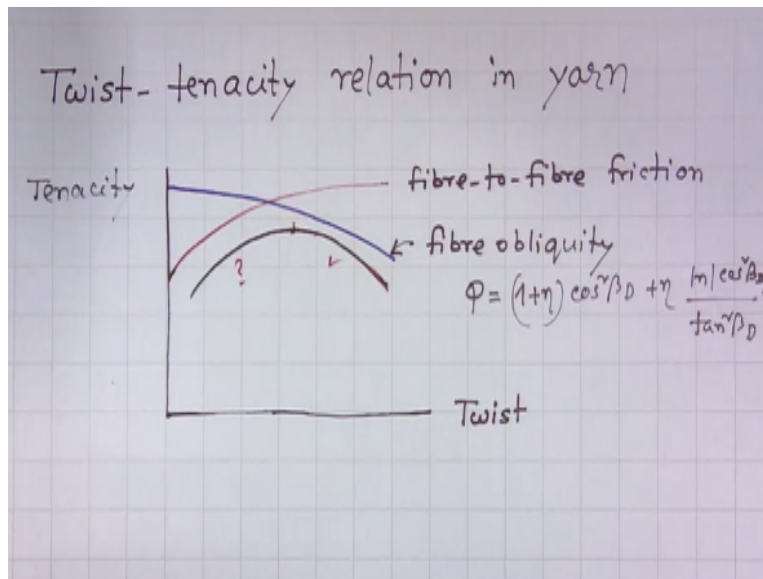 Twist-tenacity relation in yarn
Tenacity
fibre-to-fibre friction
fibre obliquity
φ = (1+η) cos²β_D + η ln|cos²β_D| / tan²β_D
?
Twist